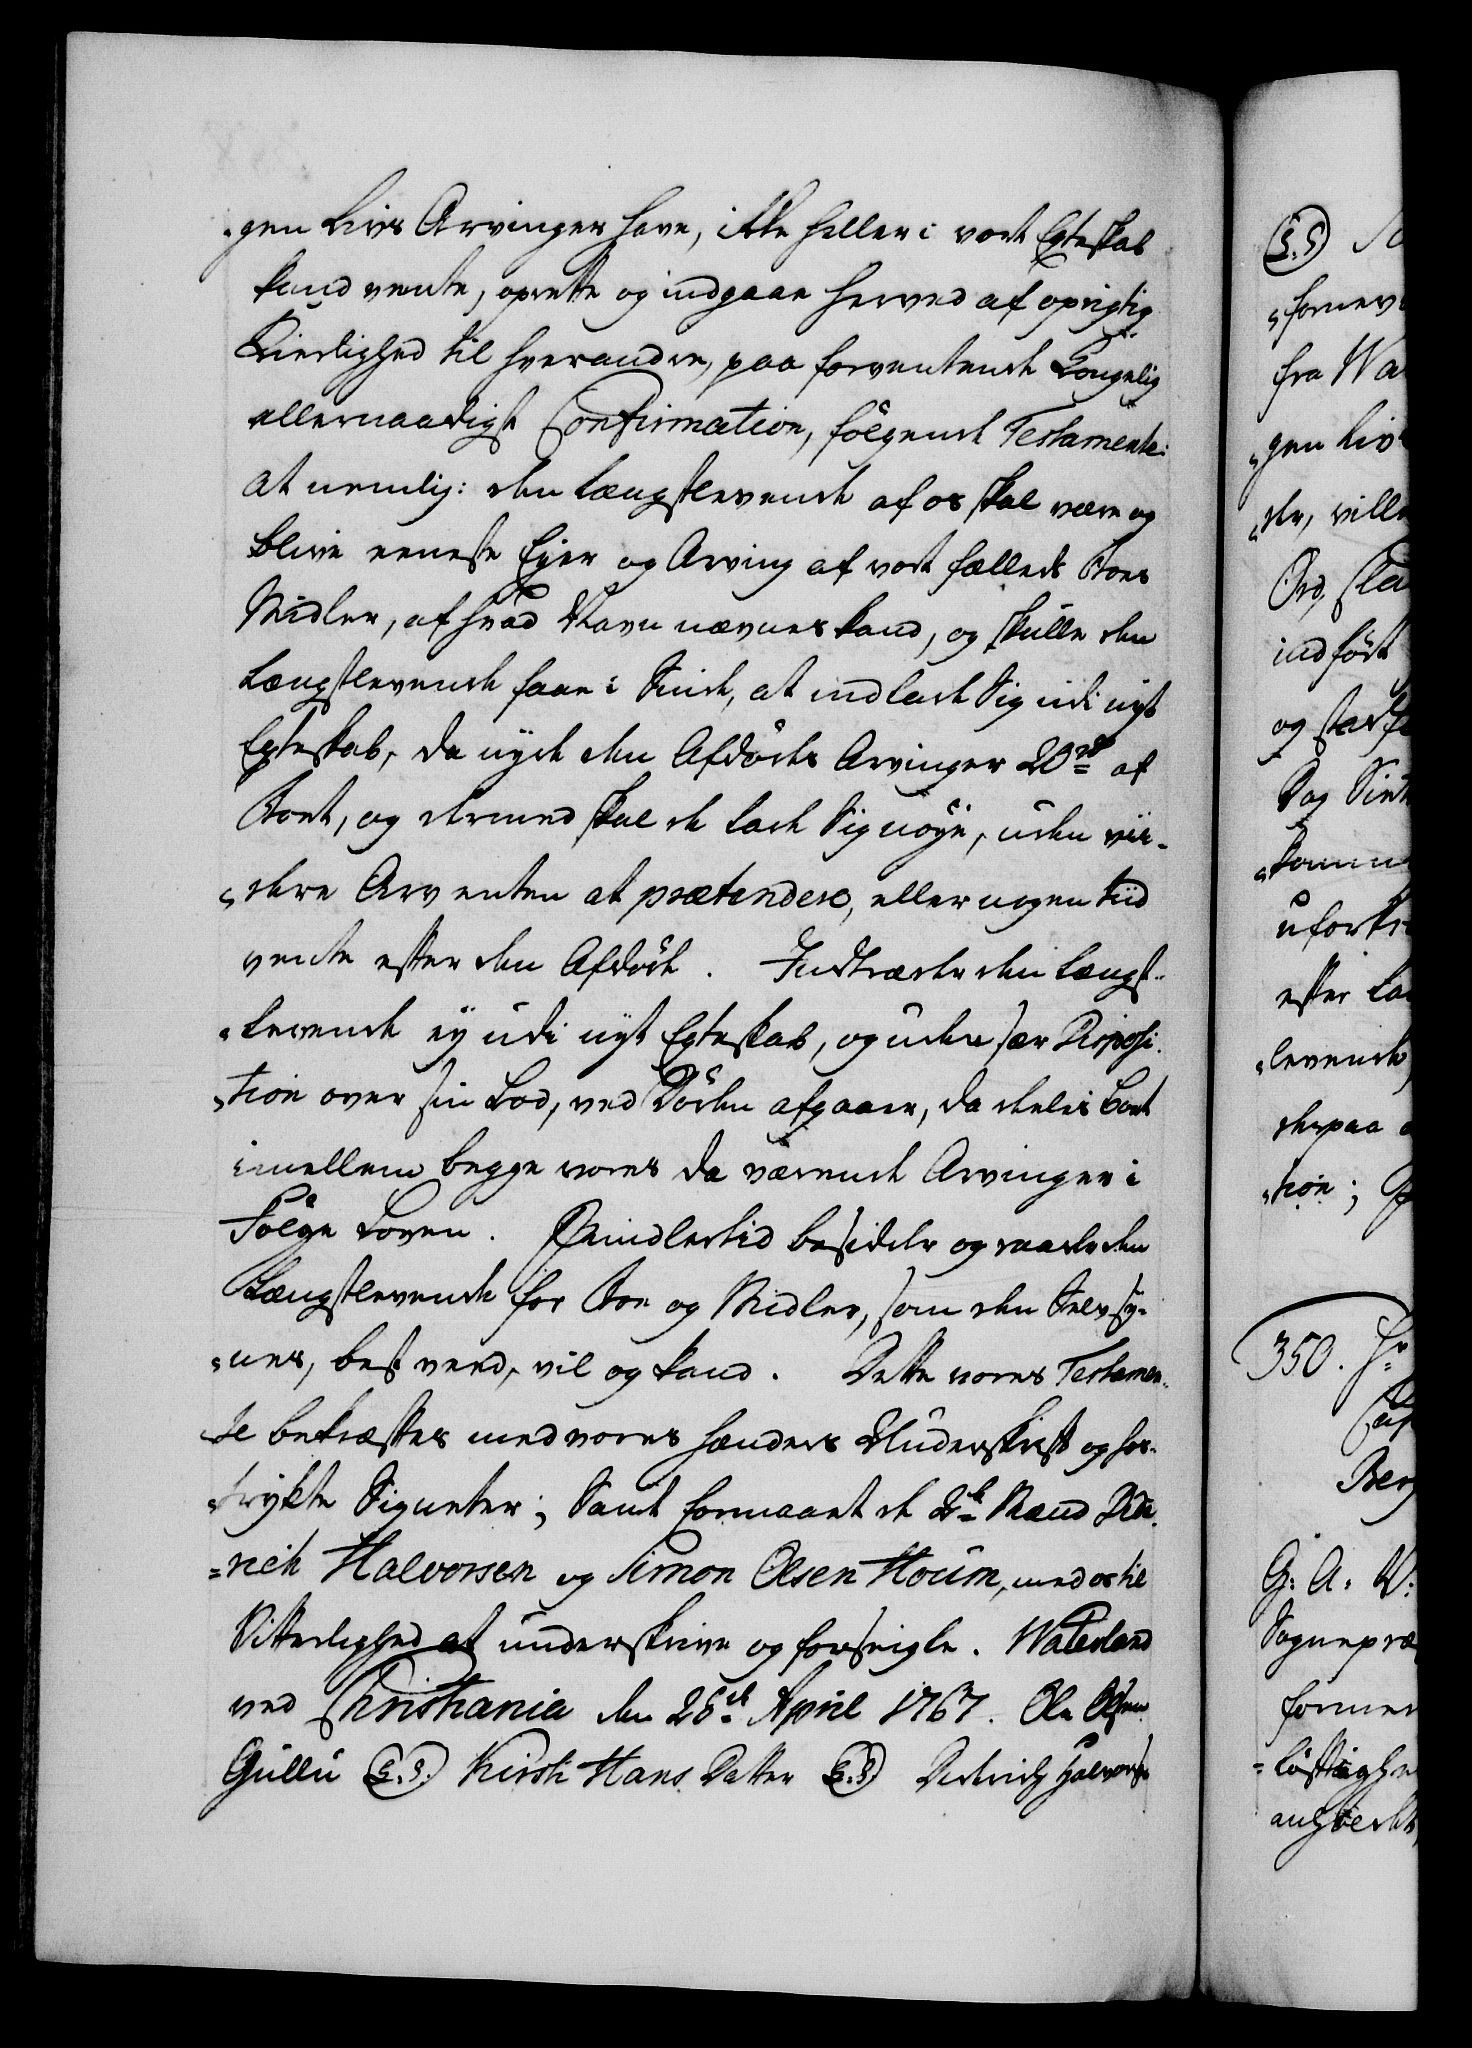 -gen Livs Arvinger have, ikke heller i vort Egteskab
kand vente, oprette og indgaae herved af oprigtig
Kierlighed til hverandre, paa forventende Kongelig
allernaadigst Confirmation, følgende Testamente:
at nemlig: den Længstlevende af os skal være og
blive eeneste Ejer og Arving af vort fælleds Boes
Midler, af hvad Navn nævnes kand, og skulle den
Længstlevende faae i Sinde, at indlade Sig udi nyt
Egteskab, da nyde den Afdødes Arvinger 20 rd af
Boet, og dermed skal de lade Sig nøye, uden vii-
-dere Arv enten at prætendere, eller nogen tiid
vente efter den Afdøde. Indtræder den Længst-
-levende ej udi nyt Egteskab, og uden sær Disposi-
-tion over sin Lod, ved Døden afgaaer, da deeles Boet
imellem begge vores da værende Arvinger i
Følge Loven. Imidlertid besidder og raader den
Længstlevende for Boe og Midler, som den Selv sy-
-nes, best veed, vil og kand. Dette vores Testamen-
-te bekræftes med vores hænders Underskrift og hos-
-trykte Signeter; Samt formaaet de 2de Mænd Did-
-rich Halvorsen og Simon Olsen Houm, med os til
Vitterlighed at underskrive og forseigle. Waterland
ved Christiania den 28de April 1767. Ole Olsen
Gullu (L.S.) Kirsti Hans Datter (L.S.) Dedrich Halvorse
(L.S)
-fornev
fra Wa
-gen Liv
-de,
Ord,
indført
og
Dag
-komm
uforkr
efter La
-levende
derpaa
-tion;
350. Hr
Cap
Ber
G: A: V:
Sognepræ
former